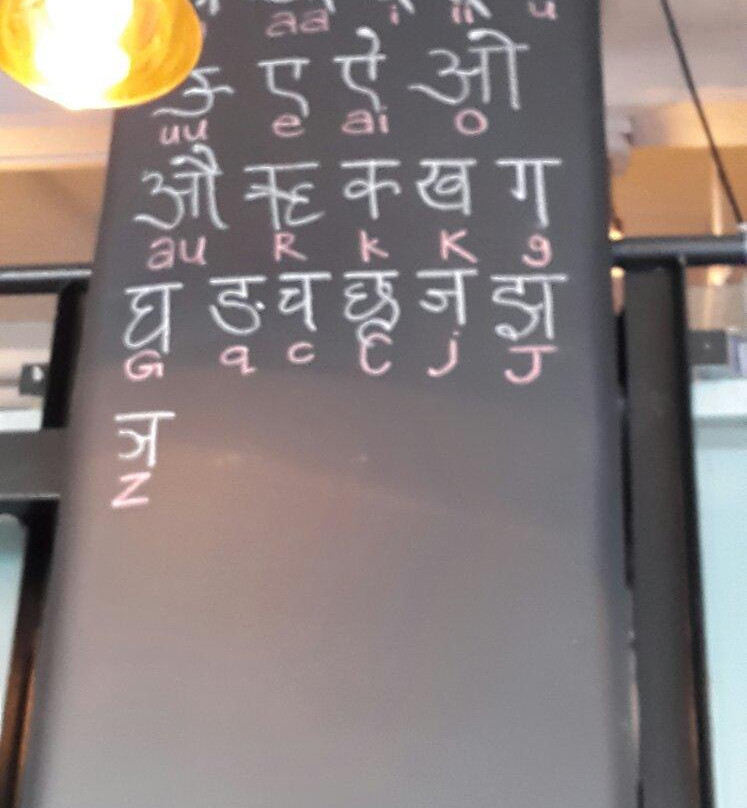 aa i ii u
ऊ ए ऐ ओ
uu e ai o
औ ऋ क ख ग
au R k K g
घ ङ च छ ज झ
G q c C j J
ञ
Z